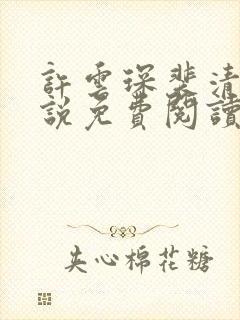 許雲琛裴清
說免費閱讀
夾心棉花糖